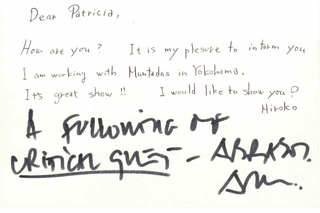 Dear Patricia,
How are you? It is my plesure to inform you
I am working with Muntadas in Yokohama.
Its great show!! I would like to show you?
Hiroko
A FOLLOWING OF
CRITICAL QUEST -